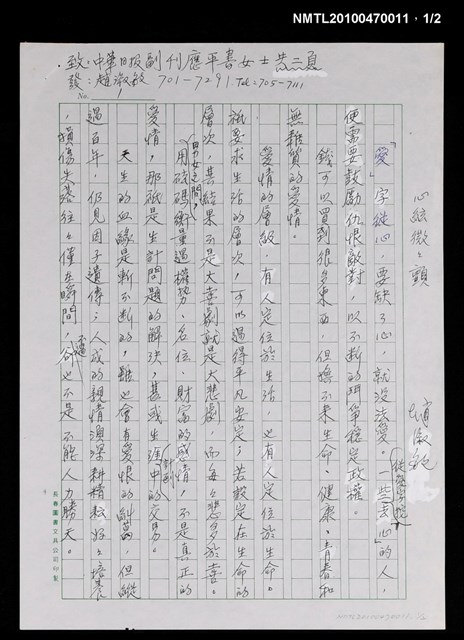 NMTL20100470011，1/2
致：中華日報副刊應平書女士 共二頁
發：趙淑敏 701-7291 Tel：705-7111
No. 1
心絃微之顫
趙淑敏
「愛」字從心，要缺了心，就沒法愛。一些「丟心」的人，
便需要鼓勵仇恨敵對，以不斷的鬥爭穩定政權。
錢可以買到很多東西，但換不來生命、健康、青春和
無雜質的愛情。
愛情的層級，有人定位於生活，也有人定位於生命。
祇要求生活的層次，可以過得平凡安定；若設定在生命的
層次，其結果不是大喜劇就是大悲劇，而每每悲多於喜。
男女之間，用砝碼衡量過權勢、名位、財富的感情，不是真正的
愛情，那祇是生計問題的解決，甚或生涯計劃中的交易。
天生的血緣是斬不斷的，雖也會有愛恨的糾葛，但縱
過百年，仍見因子遺傳；人成的親情須深耕精耘好好培養
，損傷失落往往僅在瞬間，卻也不是不能人力勝天。
長春圖書文具公司印製
NMTL20100470011, 1/2